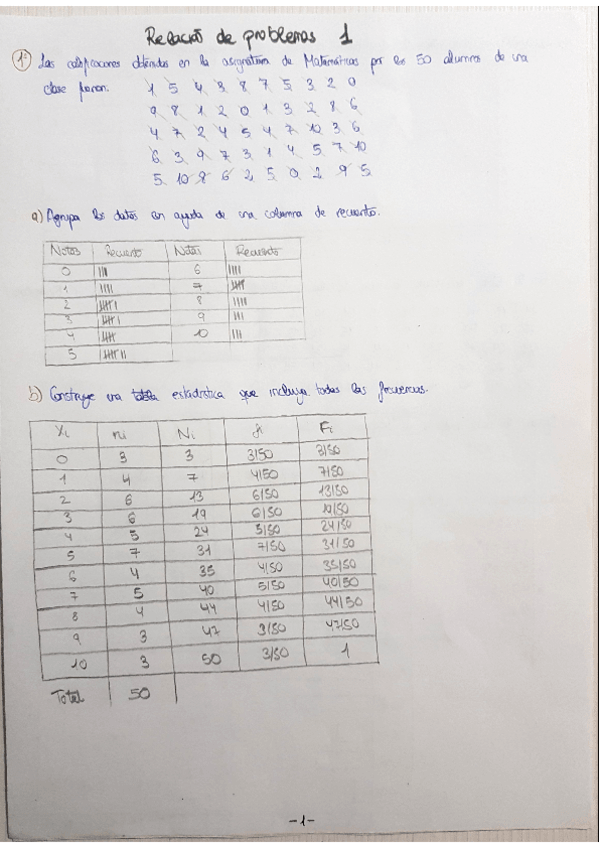 Relación de problemas 1
1º Las calificaciones obtenidas en la asignatura de Matemáticas por los 50 alumnos de una
clase fueron. 1 5 4 3 8 7 5 3 2 0
9 8 1 2 0 1 3 2 8 6
4 7 2 4 5 4 7 10 3 6
6 3 9 7 3 1 4 5 7 10
5 10 8 6 2 5 0 2 9 5
a) Agrupa los datos con ayuda de una columna de recuento.
Notas Recuento Notas Recuento
0 III 6 IIII
1 IIII 7 IIII
2 IIII I 8 IIII
3 IIII I 9 III
4 IIII 10 III
5 IIII II
b) Construye una tabla estadística que incluya todas las frecuencias.
Xi ni Ni fi Fi
0 3 3 3/50 3/50
1 4 7 4/50 7/50
2 6 13 6/50 13/50
3 6 19 6/50 19/50
4 5 24 5/50 24/50
5 7 31 7/50 31/50
6 4 35 4/50 35/50
7 5 40 5/50 40/50
8 4 44 4/50 44/50
9 3 47 3/50 47/50
10 3 50 3/50 1
Total 50
-1-